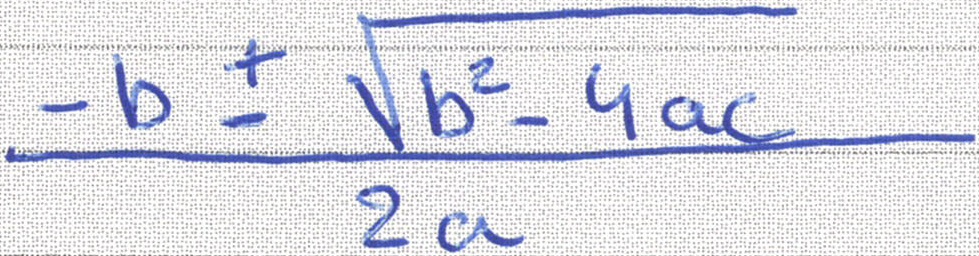 -b ± √b² - 4ac
2a